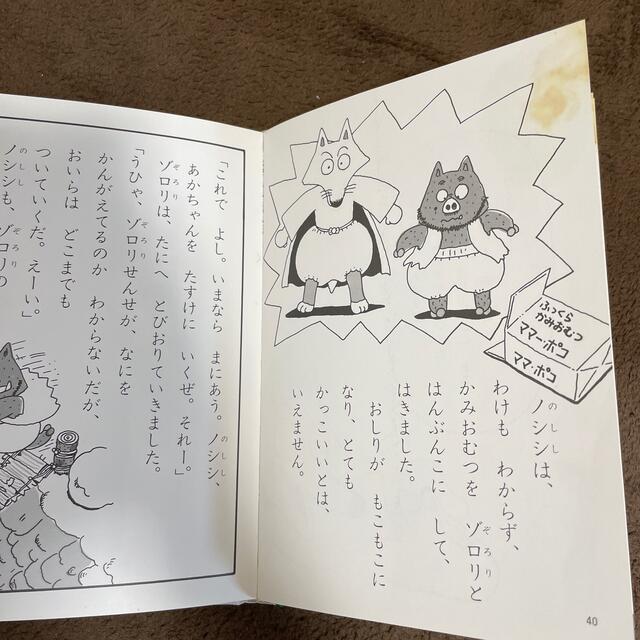 ふっくら
かみおむつ
ママー・ポコ
ママ・ポコ
のしし
ノシシは、
わけも わからず、
ぞろり
かみおむつを ゾロリと
はんぶんこに して、
はきました。
おしりが もこもこに
なり、とても
かっこいいとは、
いえません。
40
のしし
「これで よし。いまなら まにあう。ノシシ、
あかちゃんを たすけに いくぜ。それー。」
ぞろり
ゾロリは、たにへ とびおりていきました。
ぞろり
「うひゃ、ゾロリせんせが、なにを
かんがえてるのか わからないだが、
おいらは どこまでも
ついていくだ。えーい。」
のしし ぞろり
ノシシも、ゾロリの